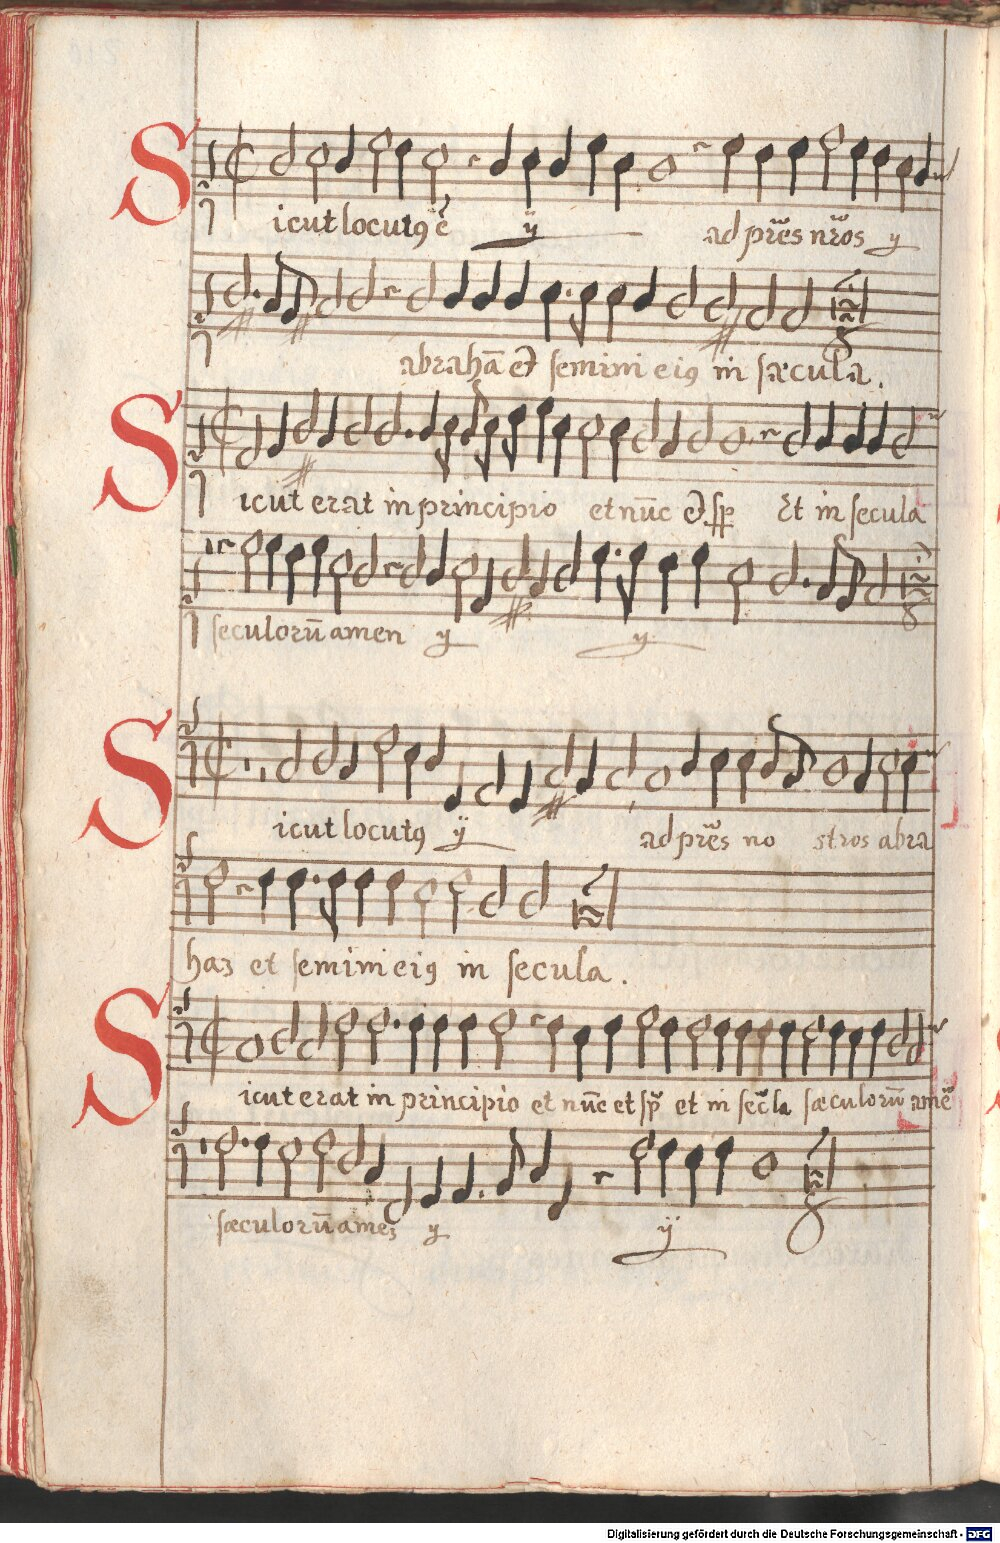 Sicut locutꝯ ē ÿ ad pr̄es nr̄os y
abrahā et semini eiꝯ in sæcula.
Sicut erat in principio et nūc et sp̄ Et in secula
seculorū amen y y
Sicut locutꝯ ÿ ad pr̄es no stros abra
haʒ et semini eiꝯ in secula.
Sicut erat in principio et nūc et sp̄ et in sec̄la sæculorū amē
sæculorū ameʒ y ÿ
Digitalisierung gefördert durch die Deutsche Forschungsgemeinschaft - DFG